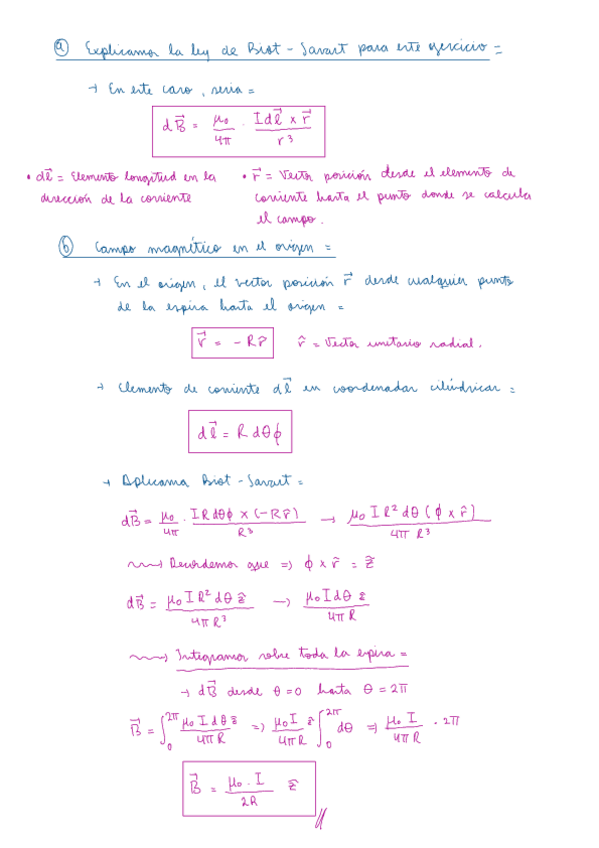 a) Explicamos la ley de Biot - Savart para este ejercicio =
→ En este caso, sería =
dB⃗ = μ₀/4π · Idl⃗ x r⃗/r³
• dl⃗ = Elemento longitud en la dirección de la corriente
• r⃗ = Vector posición desde el elemento de corriente hasta el punto donde se calcula el campo.
b) Campo magnético en el origen =
→ En el origen, el vector posición r⃗ desde cualquier punto
de la espira hasta el origen =
r⃗ = - R r̂    r̂ = Vector unitario radial.
→ Elemento de corriente dl⃗ en coordenadas cilíndricas =
dl⃗ = R dθ ϕ
→ Aplicamos Biot - Savart =
dB⃗ = μ₀/4π · I R dθ ϕ x (-R r̂)/R³ → μ₀ I R² dθ (ϕ x r̂)/4π R³
⟿ Recordemos que => ϕ x r̂ = ẑ
dB⃗ = μ₀ I R² dθ ẑ/4π R³ → μ₀ I dθ ẑ/4π R
⟿ Integramos sobre toda la espira =
→ dB⃗ desde θ = 0 hasta θ = 2π
B⃗ = ∫₀^2π μ₀ I dθ ẑ/4π R => μ₀ I/4π R ẑ ∫₀^2π dθ => μ₀ I/4π R · 2π
B⃗ = μ₀ · I/2R ẑ